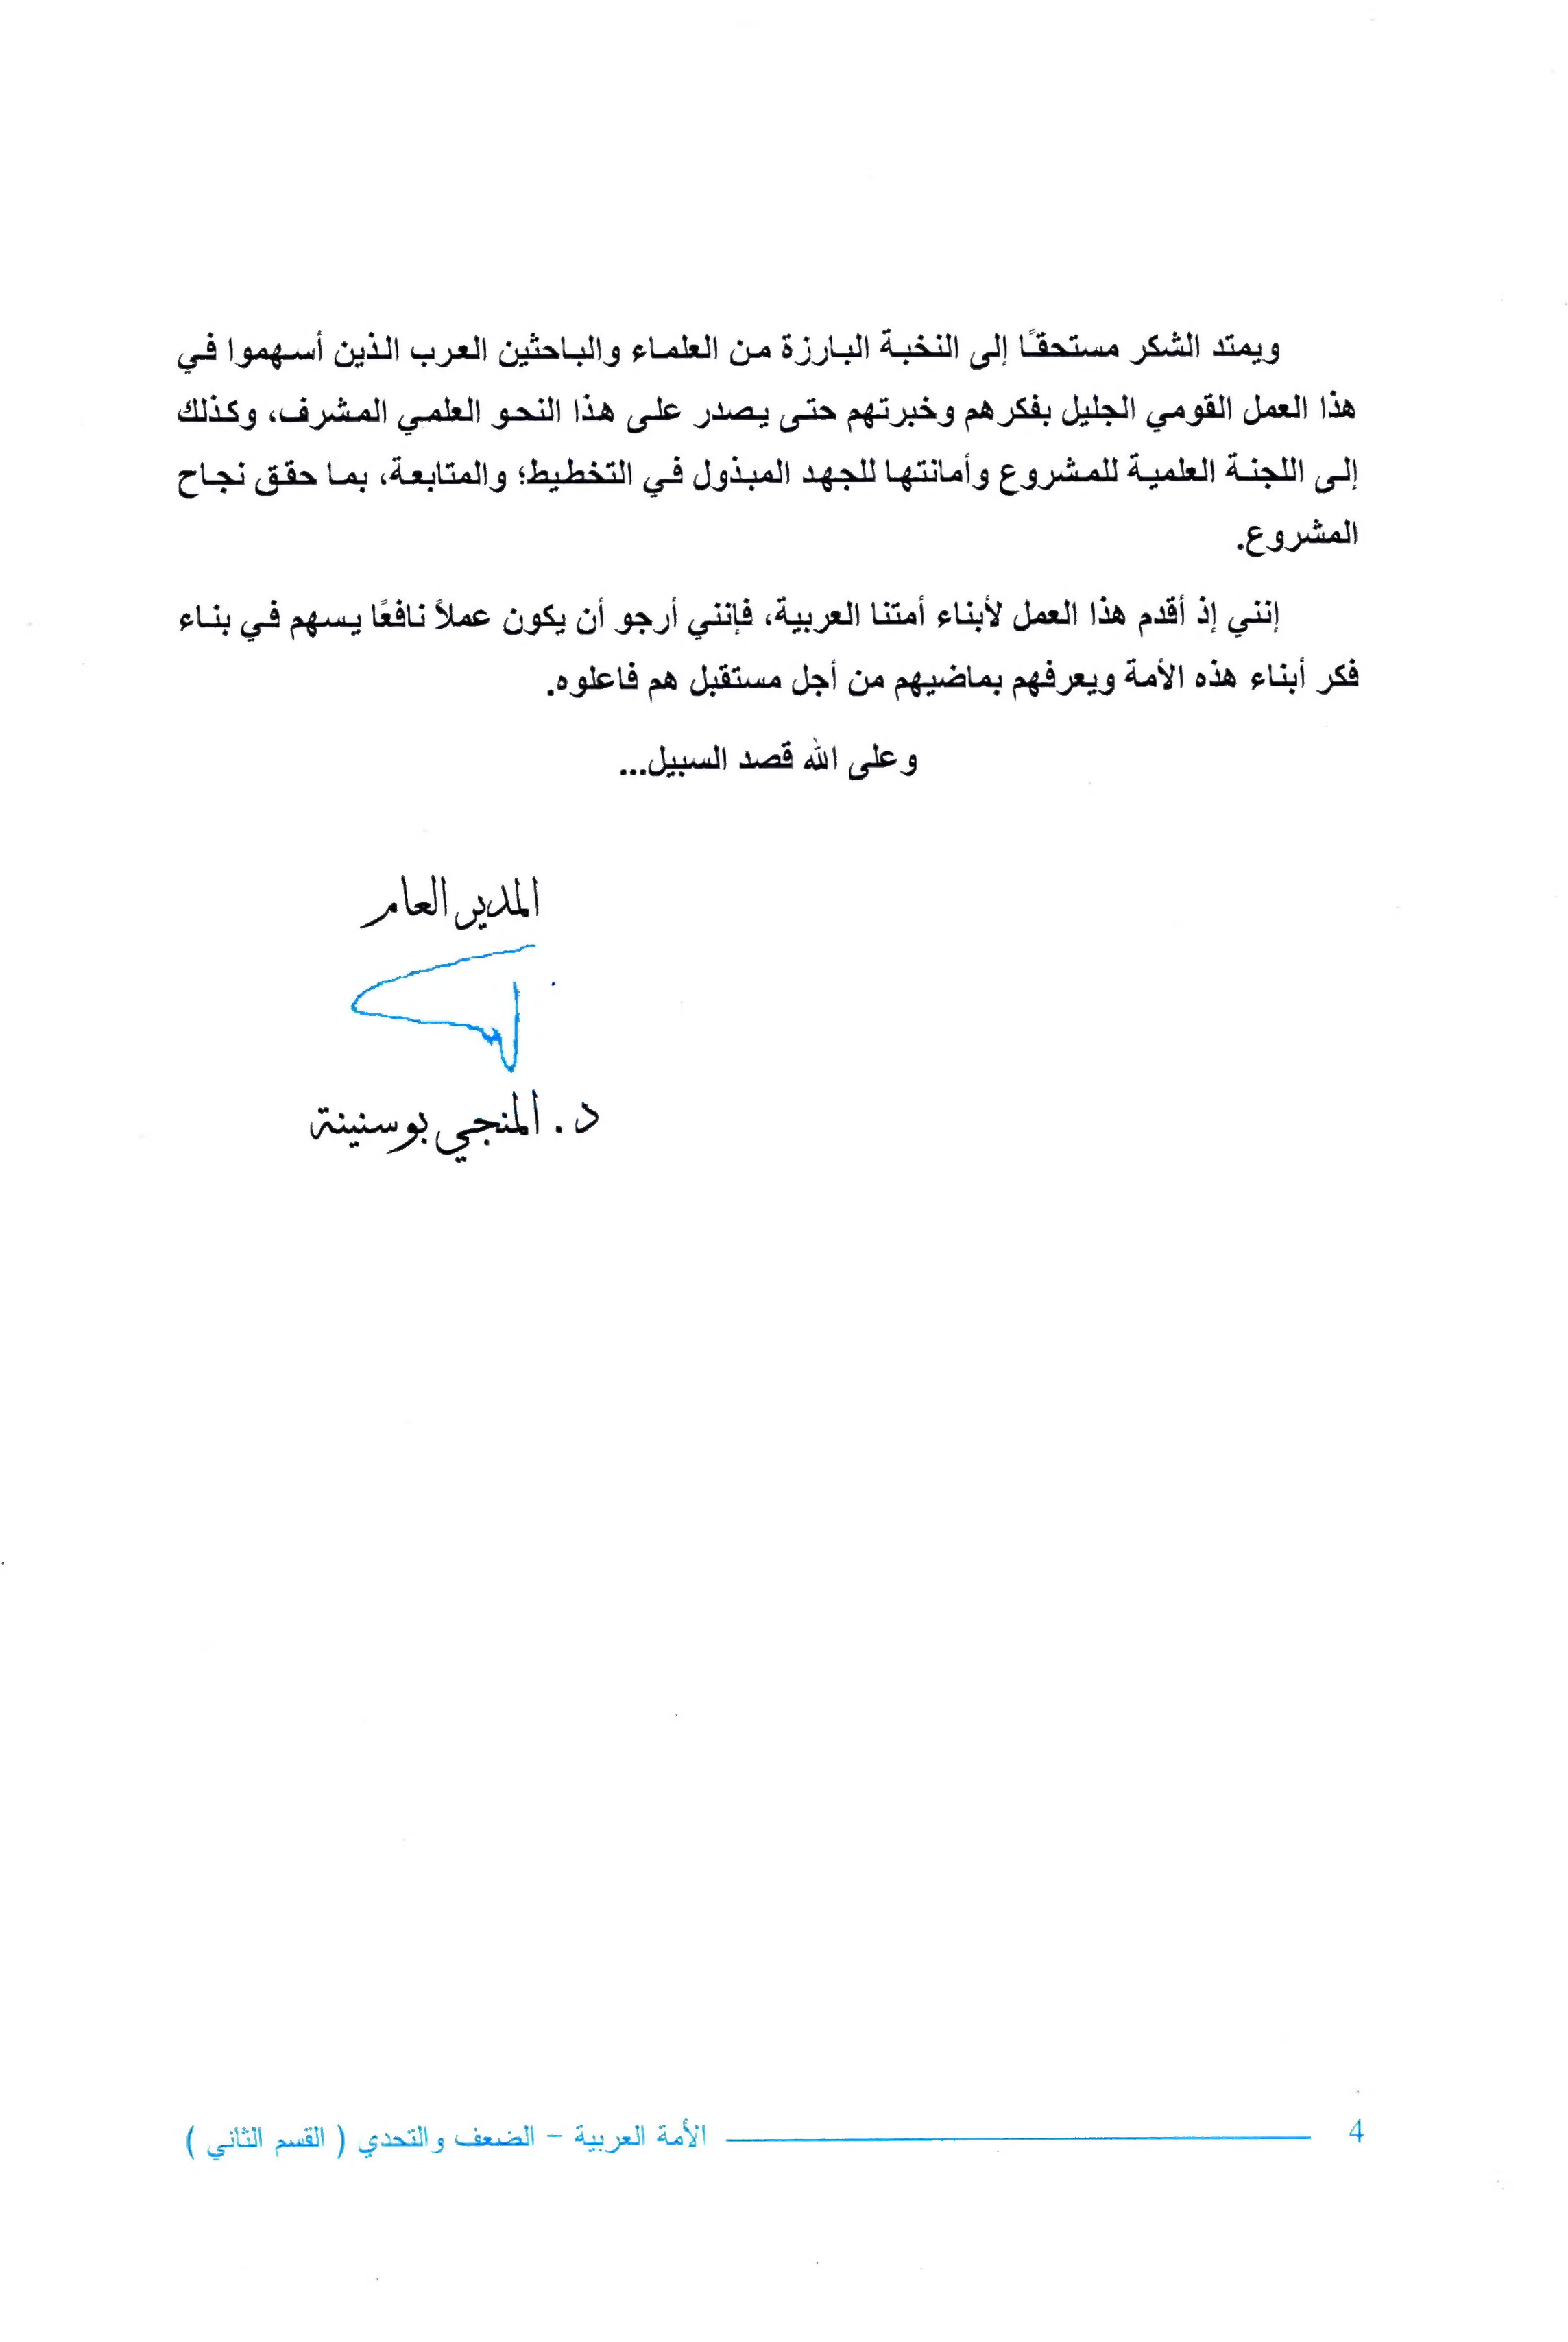 ويمتد الشكر مستحقًا إلى النخبة البارزة من العلماء والباحثين العرب الذين أسهموا في
هذا العمل القومي الجليل بفكرهم وخبرتهم حتى يصدر على هذا النحو العلمي المشرف، وكذلك
إلى اللجنة العلمية للمشروع وأمانتها للجهد المبذول في التخطيط؛ والمتابعة، بما حقق نجاح
المشروع.
إنني إذ أقدم هذا العمل لأبناء أمتنا العربية، فإنني أرجو أن يكون عملاً نافعًا يسهم في بناء
فكر أبناء هذه الأمة ويعرفهم بماضيهم من أجل مستقبل هم فاعلوه.
وعلى الله قصد السبيل...
المدير العام
د. المنجي بوسنينة
4 الأمة العربية - الضعف والتحدي ( القسم الثاني )